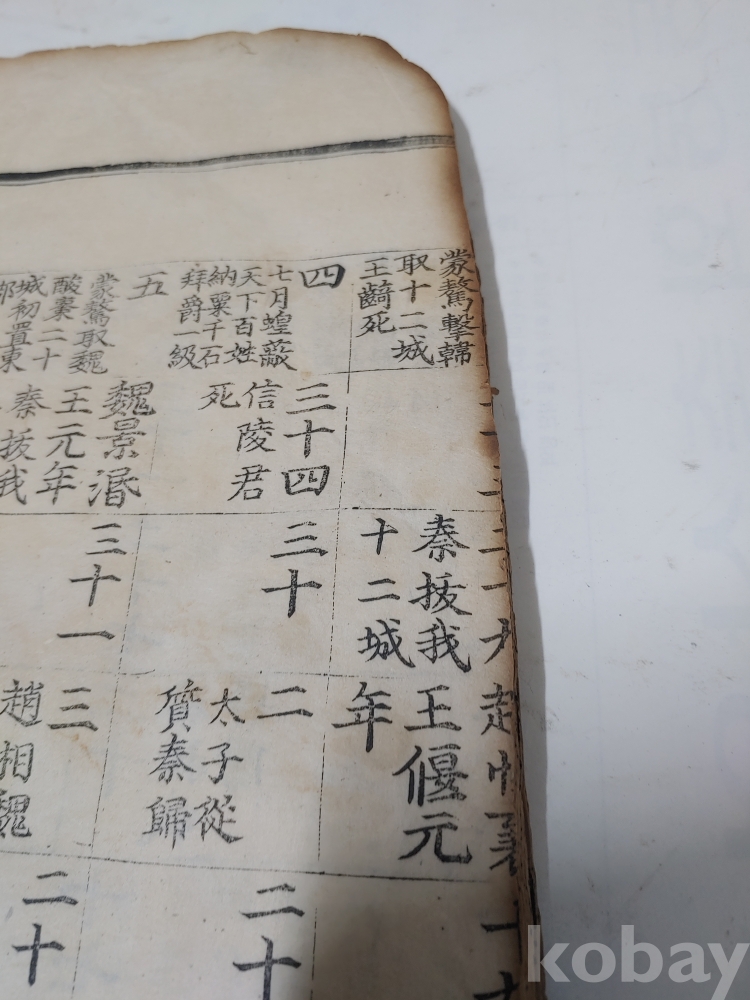 蒙驁擊韓
取十二城
王齮死
四
七月蝗蔽
天下百姓
納粟千石
拜爵一級
五
蒙驁取魏
酸棗二十
城初置東
三十四
信陵君
死
魏景湣
王元年
秦拔我
二十九
秦拔我
十二城
三十
三十一
趙悼襄
王偃元
年
二
太子從
質秦歸
三
趙相魏
二十
二十
kobay